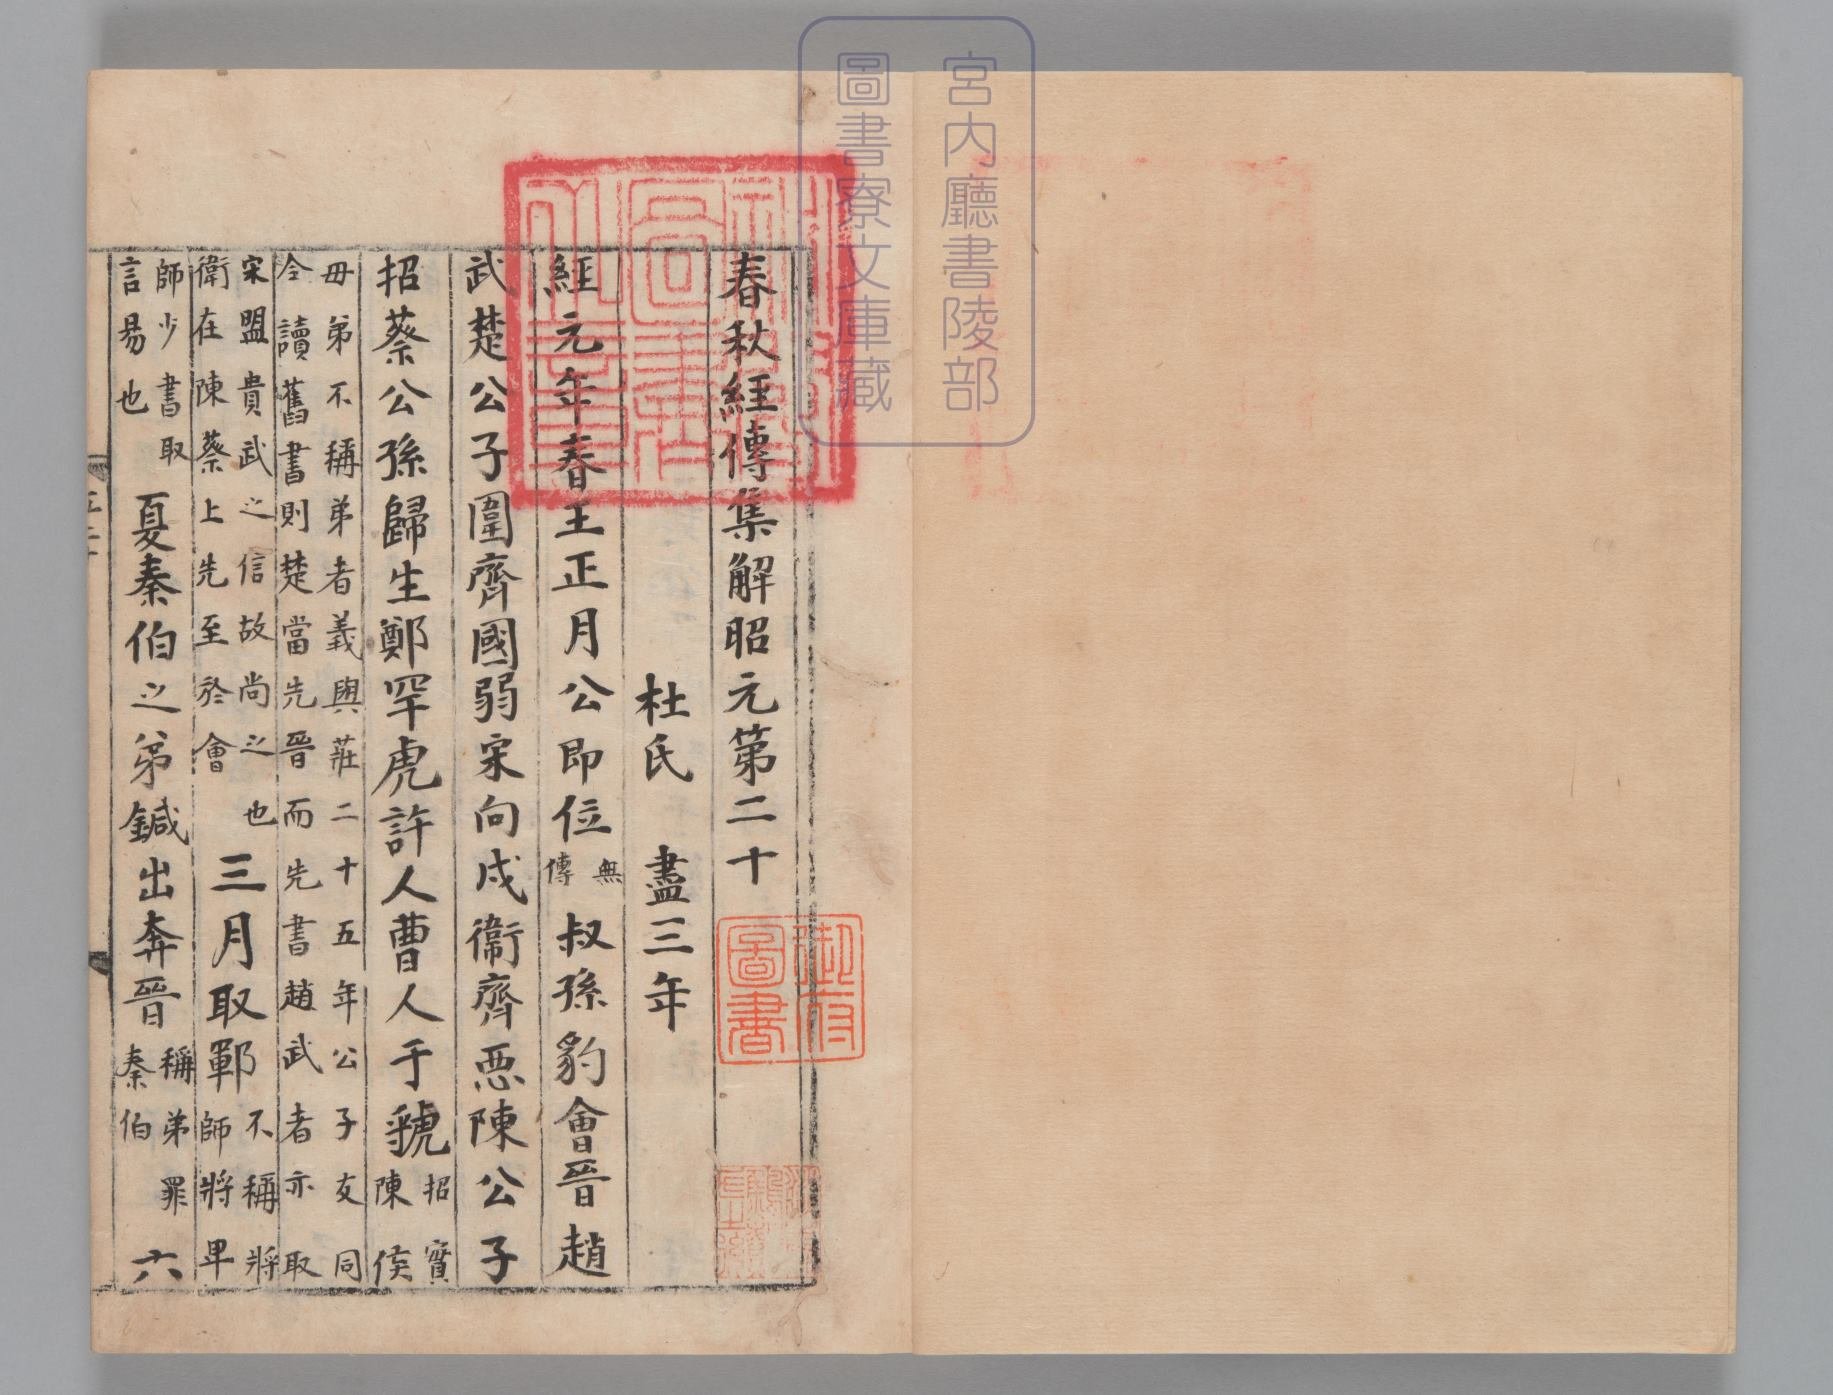 春秋經傳集解昭元第二十
杜氏　盡三年
經元年春王正月公即位無傳叔孫豹會晉趙
武楚公子圍齊國弱宋向戌衞齊惡陳公子
招蔡公孫歸生鄭罕虎許人曹人于虢招實陳侯
毋弟不稱弟者義與莊二十五年公子友同
今讀舊書則楚當先晉而先書趙武者亦取
宋盟貴武之信故尚之也
衛在陳蔡上先至於會
三月取鄆不稱將師將卑
師少書取
言易也
夏秦伯之弟鍼出奔晉稱弟罪秦伯六
宮内廳書陵部
圖書寮文庫藏
御府
圖書